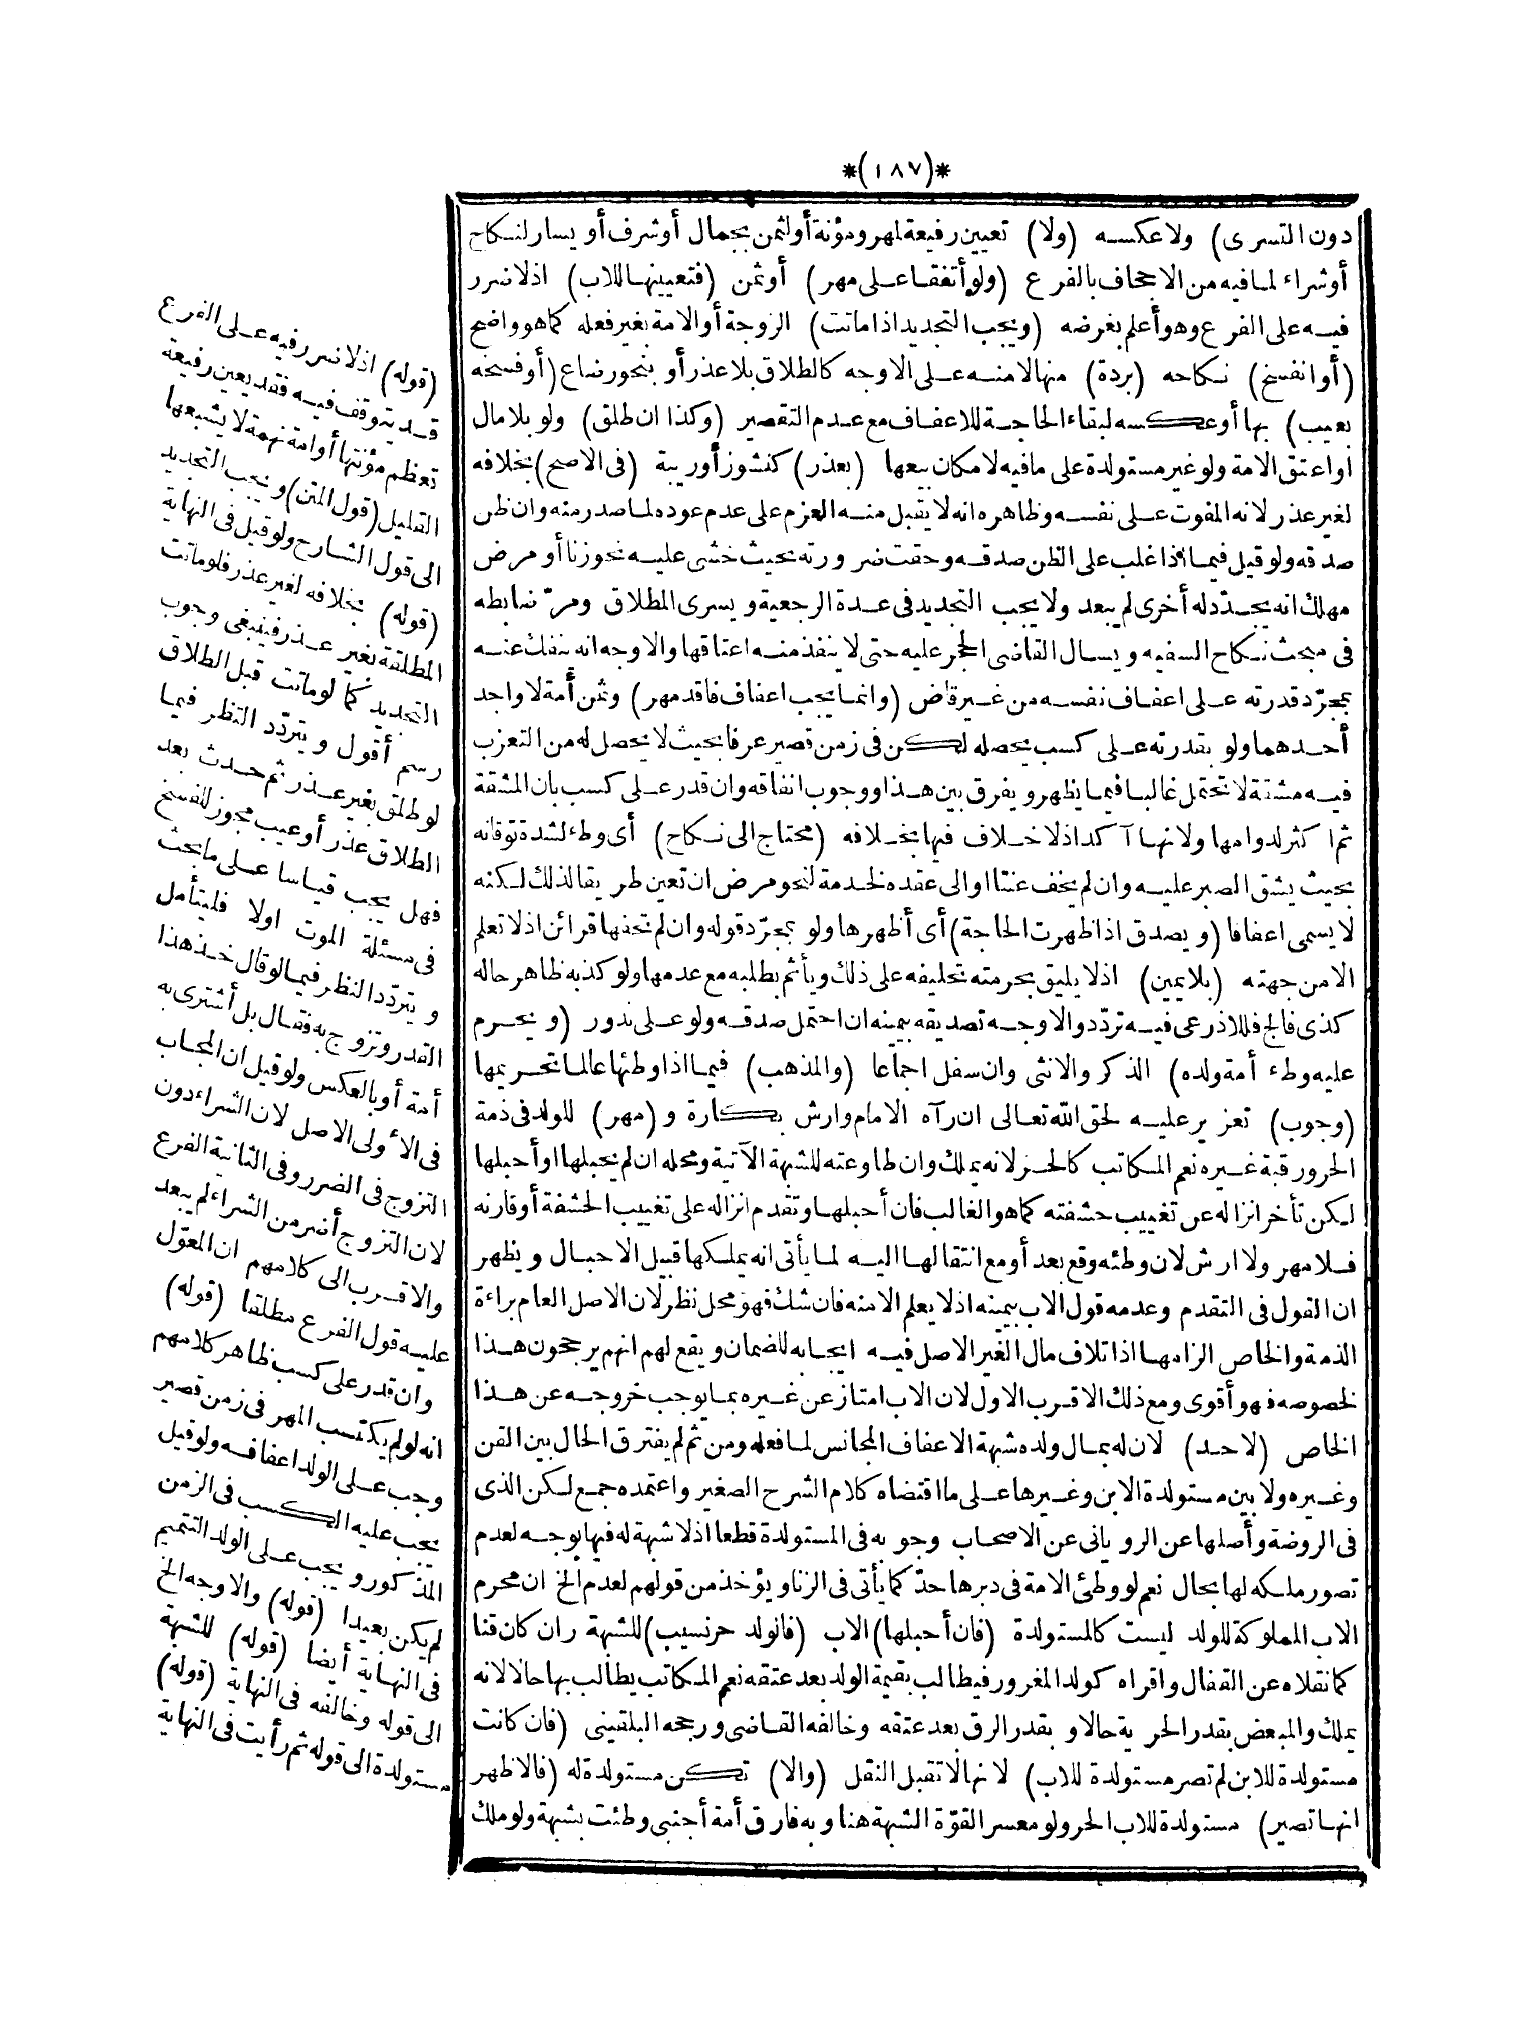 *(١٨٧)*
دون التسرى) ولاعكسه (ولا) تعيين رفيعة لمهر ومؤنة أولثمن بجمال أوشرف أو يسار لنكاح
أوشراء لما فيه من الاجحاف بالفرع (ولو أتفقا على مهر) أوثمن (فتعيينها للاب) اذلا ضرر
فيه على الفرع وهو أعلم بغرضه (ويجب التجديد اذا ماتت) الزوجة أوالامة بغير فعله كماهو واضح
(أو انفسخ) نكاحه (بردة) منها لامنه على الاوجه كالطلاق بلاعذر أو بنحو رضاع (أوفسخه
بعيب) بها أوعكسه لبقاء الحاجة للاعفاف مع عدم التقصير (وكذا ان طلق) ولو بلامال
أواعتق الامة ولوغير مستولدة على مافيه لامكان بيعها (بعذر) كنشوز أوريبة (فى الاصح) بخلافه
لغير عذر لانه المفوت على نفسه وظاهره انه لا يقبل منه العزم على عدم عوده لما صدر منه وان ظن
صدقه ولو قيل فيما اذا غلب على الظن صدقه وحقت ضرورته بحيث خشى عليه نحو زنا أو مرض
مهلك انه يجدّد له أخرى لم يبعد ولا يجب التجديد فى عدة الرجعية ويسرى المطلاق ومرّ ضابطه
فى مبحث نكاح السفيه ويسال القاضى الحجر عليه حتى لا ينفذ منه اعتاقها والاوجه انه ينفك عنه
بمجرّد قدرته على اعفاف نفسه من غير قاض (وانما يجب اعفاف فاقد مهر) وثمن أمة لا واجد
أحدهما ولو بقدرته على كسب يحصله لكن فى زمن قصير عرفا بحيث لا يحصل له من التعزب
فيه مشقة لا تحتمل غالبا فيما يظهر ويفرق بين هذا ووجوب انفاقه وان قدر على كسب بان المشقة
ثم اكثر لدوامها ولانها آكد اذلا خلاف فيها بخلافه (محتاج الى نكاح) أى وطء لشدة توقانه
بحيث يشق الصبر عليه وان لم يخف عنتا اوالى عقده لخدمة لنحو مرض ان تعين طريقا لذلك لكنه
لا يسمى اعفافا (ويصدق اذا ظهرت الحاجة) أى أظهرها ولو بمجرّد قوله وان لم تحفها قرائن اذلا تعلم
الا من جهته (بلا يمين) اذلا يليق بحرمته تحليفه على ذلك ويأثم بطلبه مع عدمها ولو كذبه ظاهر حاله
كذى فالج فللاذرعى فيه تردّد والاوجه تصديقه بيمينه ان احتمل صدقه ولو على ندور (ويحرم
عليه وطء أمة ولده) الذكر والانثى وان سفل اجماعا (والمذهب) فيما اذا وطئها عالما تحريمها
(وجوب) تعزير عليه لحق الله تعالى ان رآه الامام وارش بكارة و(مهر) للولد فى ذمة
الحر ورقبة غيره نعم المكاتب كالحر لانه يملك وان طاوعته للشبهة الآتية ومحله ان لم يحبلها او أحبلها
لكن تأخر انزاله عن تغييب حشفته كما هو الغالب فان أحبلها وتقدم انزاله على تغييب الحشفة أوقارنه
فلا مهر ولا ارش لان وطئه وقع بعد أومع انتقالها اليه لما يأتى انه يملكها قبيل الاحبال ويظهر
ان القول فى التقدم وعدمه قول الاب بيمينه اذلا يعلم الا منه فان شك فهو محل نظر لان الاصل العام براءة
الذمة والخاص الزامها اذ اتلاف مال الغير الاصل فيه ايجابه للضمان ويقع لهم انهم يرجحون هذا
لخصوصه فهو أقوى ومع ذلك الاقرب الاول لان الاب امتاز عن غيره بما يوجب خروجه عن هذا
الخاص (لاحد) لان له بمال ولده شبهة الاعفاف المجانس لما فعله ومن ثم لم يفترق الحال بين القن
وغيره ولا بين مستولدة الابن وغيرها على ما اقتضاه كلام الشرح الصغير واعتمده جمع لكن الذى
فى الروضة وأصلها عن الرويانى عن الاصحاب وجوبه فى المستولدة قطعا اذلا شبهة له فيها بوجه لعدم
تصور ملكه لها بحال نعم لو وطئ الامة فى دبرها حدّ كما يأتى فى الزنا ويؤخذ من قولهم لعدم الخ ان محرم
الاب المملوكة للولد ليست كالمستولدة (فان أحبلها) الاب (فالولد حر نسيب) للشبهة وان كان قنا
كما نقلاه عن القفال واقراه كولد المغرور فيطالب بقيمة الولد بعد عتقه نعم المكاتب يطالب بها حالا لانه
يملك والمبعض بقدر الحرية حالا وبقدر الرق بعد عتقه وخالفه القاضى ورجحه البلقينى (فان كانت
مستولدة للابن لم تصر مستولدة للاب) لانها لا تقبل النقل (والا) تكن مستولدة له (فالاظهر
انها تصير) مستولدة للاب الحر ولو معسر القوّة الشبهة هنا وبه فارق أمة أجنبى وطئت بشبهة ولو ملك
(قوله) اذلا ضرر فيه على الفرع
قد يتوقف فيه فقد يعين رفيعة
تعظم مؤنتها أوامة نهمة لا يشبعها
القليل (قول المتن) ويجب التجديد
الى قول الشارح ولو قيل فى النهاية
(قوله) بخلافه لغير عذر فلو ماتت
المطلقة بغير عذر فينبغى وجوب
التجديد كما لو ماتت قبل الطلاق
رسم أقول ويتردّد النظر فيما
لو طلق بغير عذر ثم حدث بعد
الطلاق عذر أو عيب مجوز للفسخ
فهل يجب قياسا على ما بحث
فى مسئلة الموت اولا فليتأمل
ويتردّد النظر فيما لو قال خذ هذا
القدر وتزوج به فقال بل أشترى به
أمة أو بالعكس ولو قيل ان المجاب
فى الأولى الاصل لان الشراء دون
التزوج فى الضرر وفى الثانية الفرع
لان التزوج أضر من الشراء لم يبعد
والاقرب الى كلامهم ان المعوّل
عليه قول الفرع مطلقا (قوله)
وان قدر على كسب ظاهر كلامهم
انه لو لم يكتسب المهر فى زمن قصير
وجب على الولد اعفافه ولو قيل
يجب عليه الكسب فى الزمن
المذكور ويجب على الولد التتميم
لم يكن بعيدا (قوله) والاوجه الخ
فى النهاية أيضا (قوله) للشبهة
الى قوله وخالفه فى النهاية (قوله)
مستولدة الى قوله ثم رأيت فى النهاية